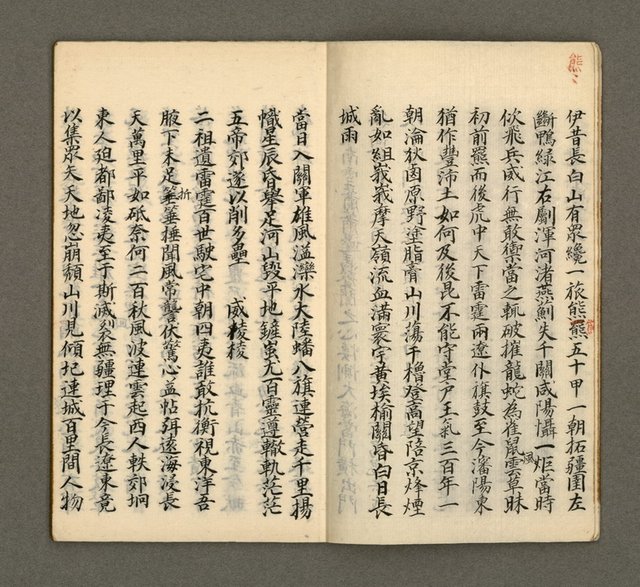 熊〻
伊昔長白山有眾纔一旅熊熊五十甲一朝拓疆圉左
斷鴨綠江右劘渾河渚燕薊失千關咸陽懾一炬當時
佽飛兵威行無敢禦當之輒破摧龍蛇為雀鼠雲草昧
風
初前熊而後虎中天下雷霆兩遼仆旗鼓至今瀋陽東
猶作豐沛土如何及後昆不能守堂戶王氣三百年一
朝淪狄囪原野塗脂膏山川蕩干櫓登高望陪京烽煙
亂如組峩峩摩天嶺流血滿寰宇黃埃榆關昏白日長
城雨
當日入關軍雄風溢灤水大陸蟠八旗連營走千里揚
幟星辰昏舉足河山毀平地鏟蚩尤百靈遵轍軌茫茫
五帝郊遂以削多壘 威稜稜
二祖遺雷霆百世駛宅中朝四夷誰敢抗衡視東洋吾
腋下未足箠箠捶聞風常讋伏驚心益帖弭遠海浸長
折
天萬里平如砥奈何二百秋風波連雲起西人軼郊坰
東人迫都鄙凌夷至于斯滅裂無疆理于今長遼東竟
以集眾矢天地忽崩頹山川見傾圮連城百里間人物